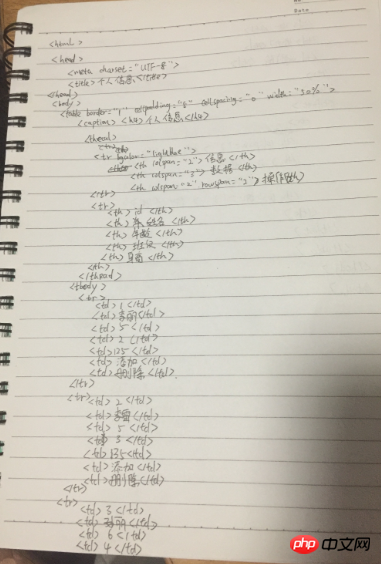 <html>
<head>
<meta charset="UTF-8">
<title>个人信息</title>
</head>
<body>
<table border="1" cellpadding="0" cellspacing="0" width="50%">
<caption> <h4>个人信息</h4>
<thead>
<tr bgcolor="lightblue">
<th colspan="2">信息</th>
<th colspan="3">数据</th>
<th colspan="2" rowspan="2">操作
</tr>
<tr>
<th> id </th>
<th> 姓名</th>
<th> 年龄</th>
<th> 班级</th>
<th> 身高</th>
</th>
</thead>
<tbody>
<tr>
<td> 1 </td>
<td> 李丽</td>
<td> 5 </td>
<td> 2 </td>
<td> 125 </td>
<td> 添加 </td>
<td> 删除 </td>
</tr>
<tr> <td> 2 </td>
<td> </td>
<td> 5 </td>
<td> 3 </td>
<td> 135 <td>
<td> 添加</td>
<td> 删除</td>
</tr>
<tr>
<td> 3 </td>
<td> </td>
<td> 6 </td>
<td> 4 </td>
php中文网